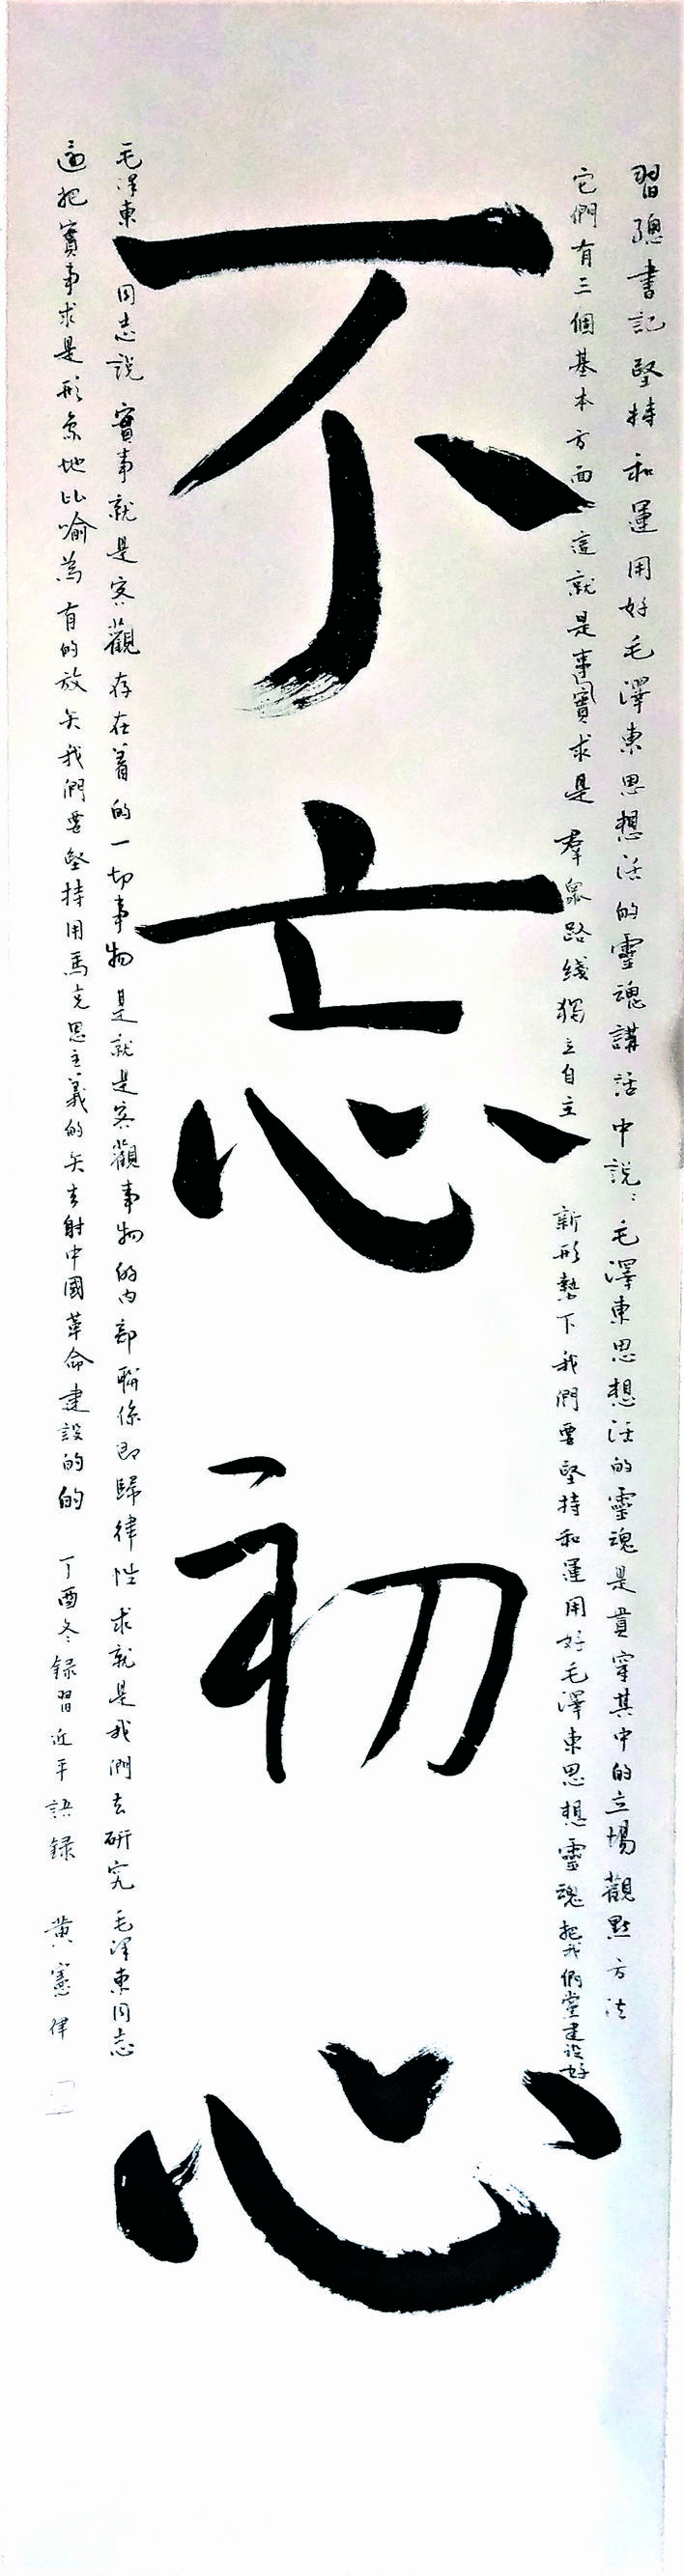 習總書記堅持和運用好毛澤東思想活的靈魂講話中說：毛澤東思想活的靈魂是貫穿其中的立場觀點方法
它們有三個基本方面這就是事實求是羣眾路綫獨立自主 新形勢下我們要堅持和運用好毛澤東思想靈魂把我們黨建設好
不忘初心
毛澤東同志說實事就是客觀存在着的一切事物是就是客觀事物的內部聯係即歸律性求就是我們去研究毛澤東同志
還把實事求是形象地比喻為有的放矢我們要堅持用馬克思主義的矢去射中國革命建設的的 丁酉冬錄習近平語錄 黃憲律